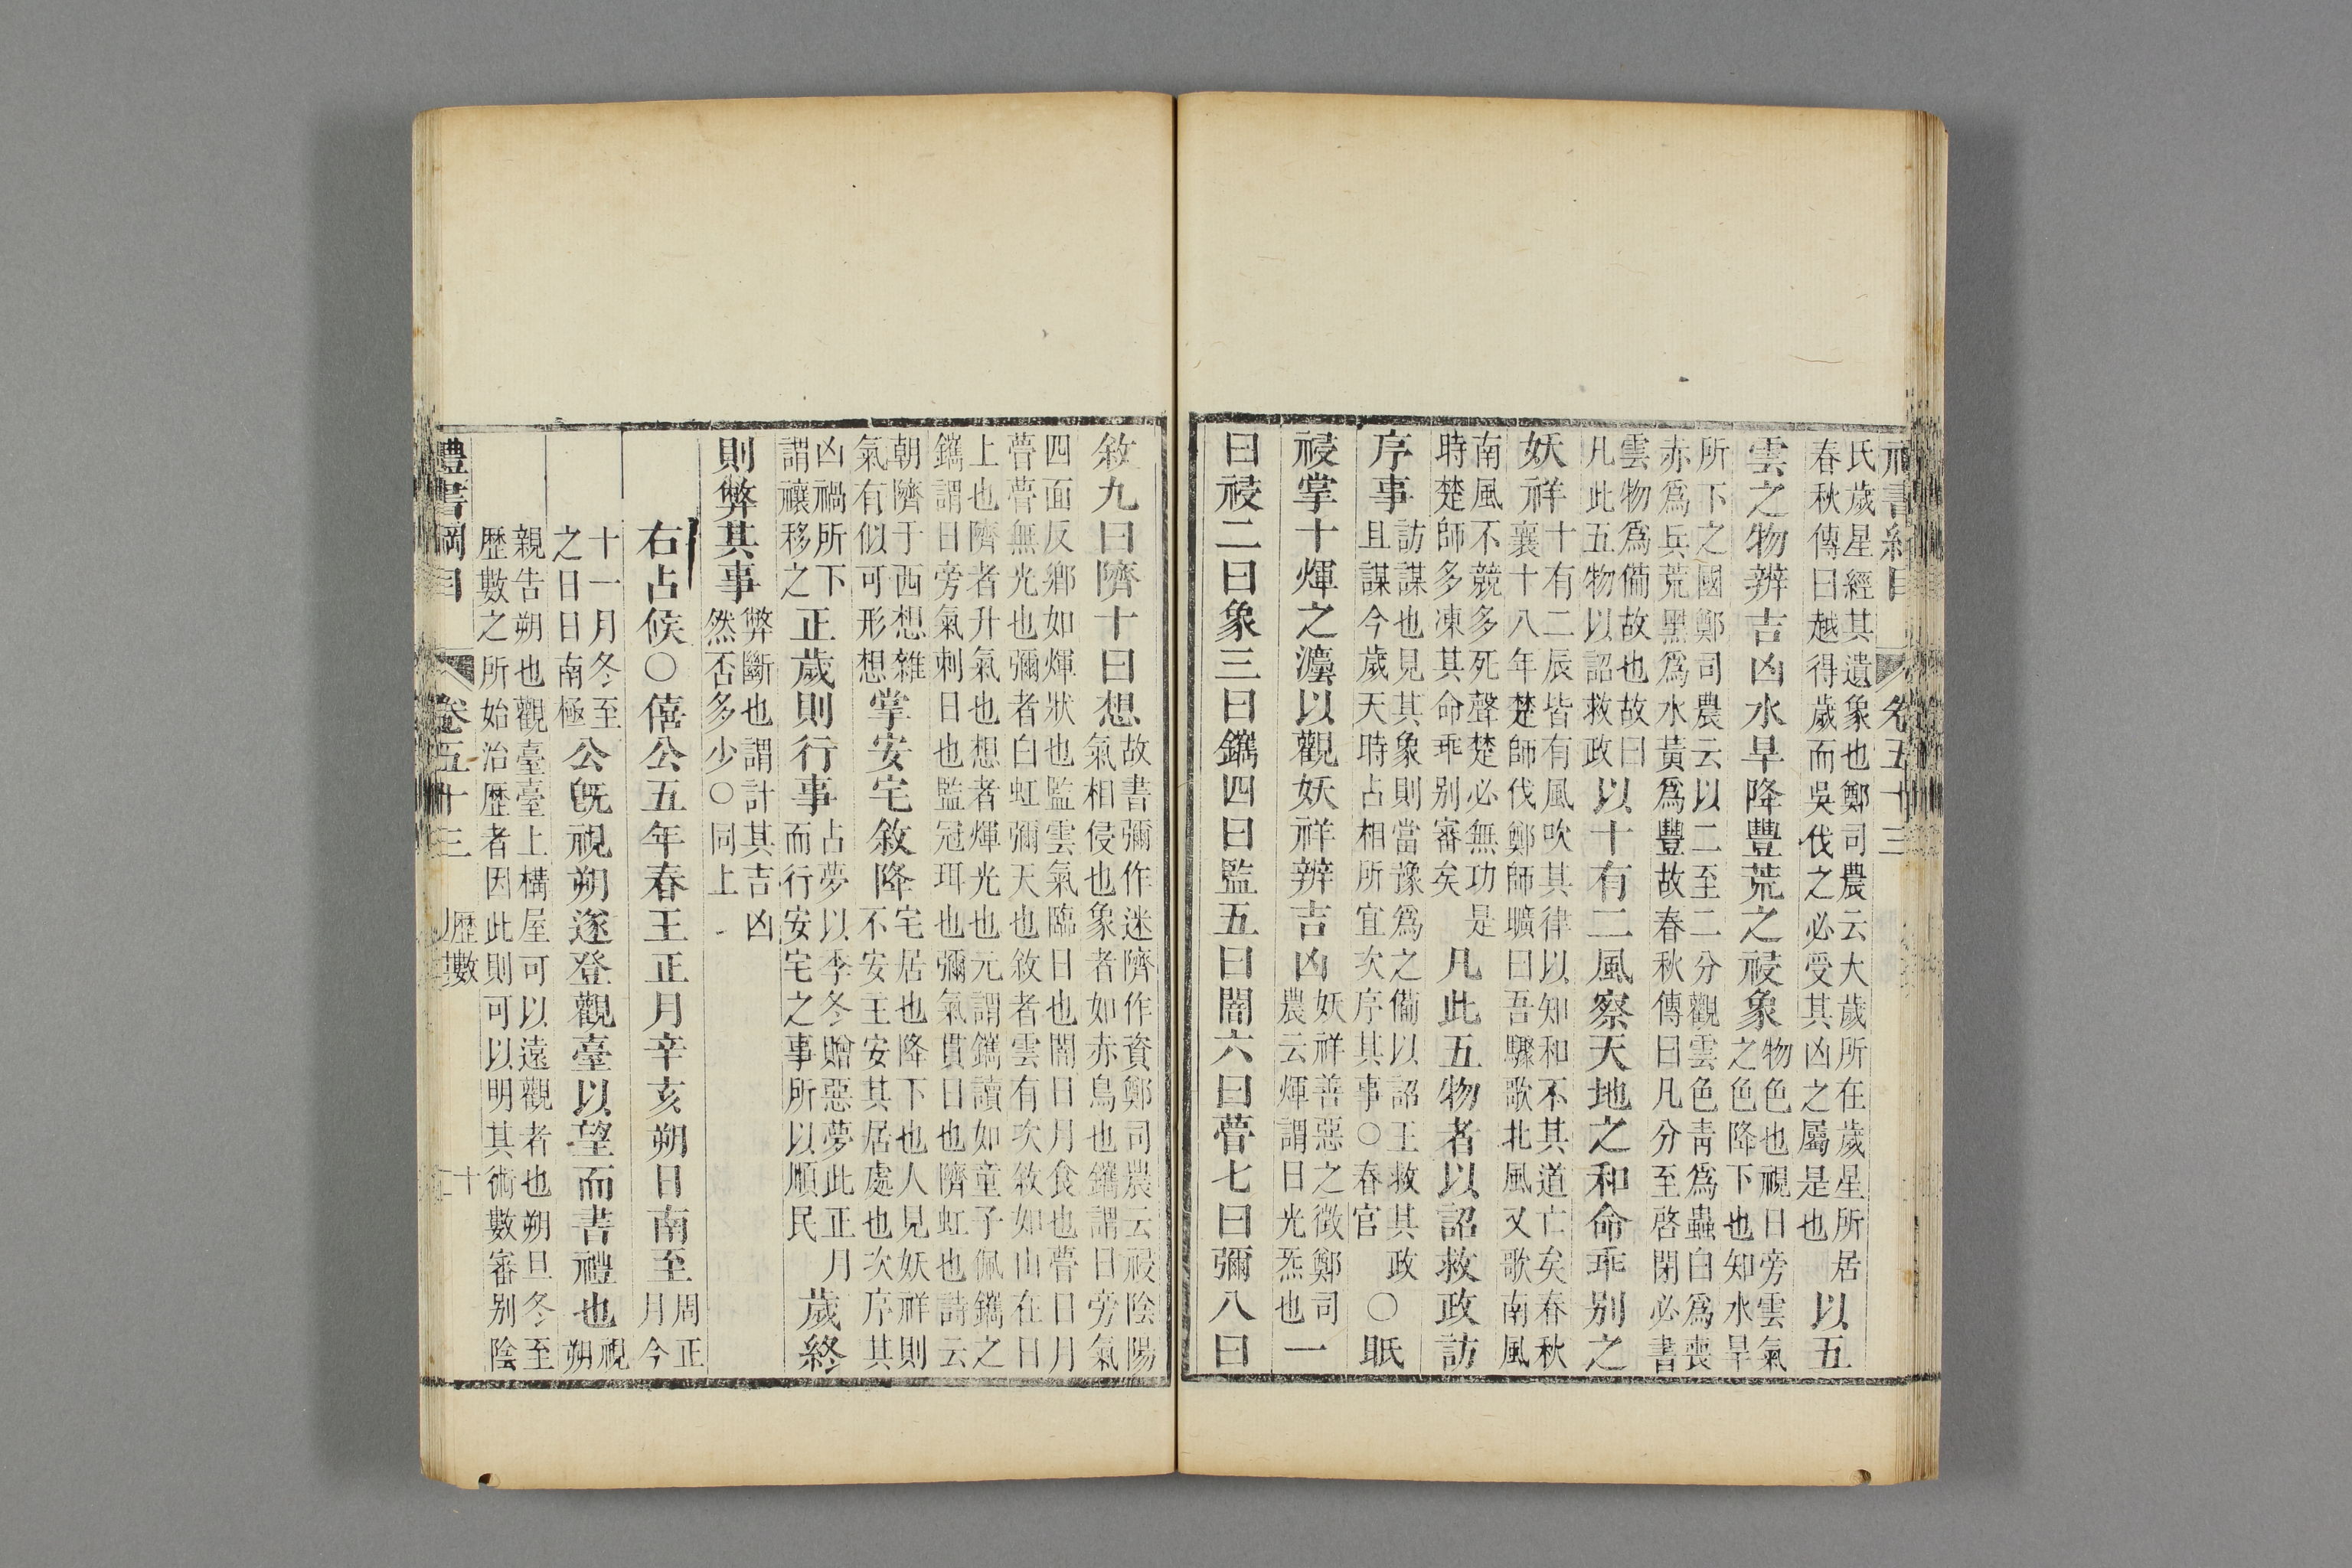 氏歲星經其遺象也鄭司農云大歲所在歲星所居
春秋傳曰越得歲而吳伐之必受其凶之屬是也
以五
雲之物辨吉凶水旱降豐荒之祲象
物色也視日旁雲氣
之色降下也知水旱
所下之國鄭司農云以二至二分觀雲色靑爲蟲白爲喪
赤爲兵荒黑爲水黃爲豐故春秋傳曰凡分至啓閉必書
雲物爲備故也故曰
凡此五物以詔救政
以十有二風察天地之和命乖别之
妖祥
十有二辰皆有風吹其律以知和不其道亡矣春秋
襄十八年楚師伐鄭師曠曰吾驟歌北風又歌南風
南風不競多死聲楚必無功是
時楚師多凍其命乖别審矣
凡此五物者以詔救政訪
序事
訪謀也見其象則當豫爲之備以詔王救其政
且謀今歲天時占相所宜次序其事○春官
○眂
祲掌十煇之灋以觀妖祥辨吉凶
妖祥善惡之徵鄭司
農云煇謂日光炁也
一
曰祲二曰象三曰鑴四曰監五曰闇六曰瞢七曰彌八曰
敘九曰隮十曰想
故書彌作迷隮作資鄭司農云祲陰陽
氣相侵也象者如赤烏也鑴謂日旁氣
四面反鄉如煇狀也監雲氣臨日也闇日月食也瞢日月
瞢瞢無光也彌者白虹彌天也敘者雲有次敘如山在日
上也隮者升氣也想者煇光也元謂鑴讀如童子佩鑴之
鑴謂日旁氣刺日也監冠珥也彌氣貫日也隮虹也詩云
朝隮于西想雜
氣有似可形想
掌安宅敘降
宅居也降下也人見妖祥則
不安主安其居處也次序其
凶禍所下
謂禳移之
正歲則行事
占夢以季冬贈惡夢此正月
而行安宅之事所以順民
歲終
則弊其事
弊斷也謂計其吉凶
然否多少○同上
右占候○僖公五年春王正月辛亥朔日南至
周正
月今
十一月冬至
之日日南極
公旣視朔遂登觀臺以望而書禮也
視
朔
親告朔也觀臺臺上構屋可以遠觀者也朔旦冬至
歴數之所始治歴者因此則可以明其術數審别陰
禮書綱目
卷五十三
歴數